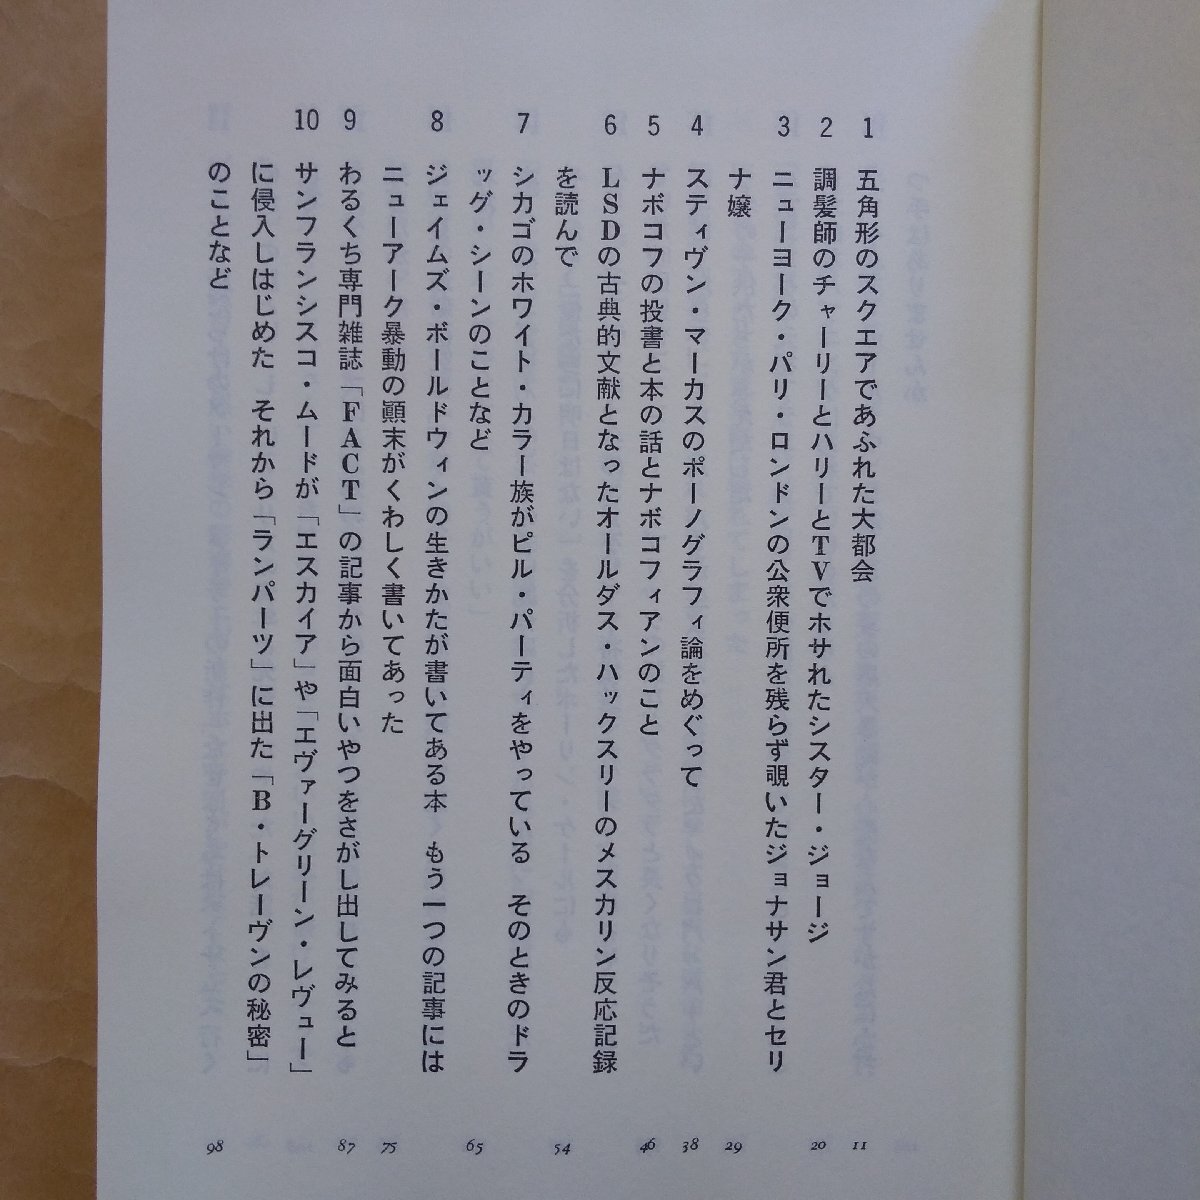 1 五角形のスクエアであふれた大都会 11
2 調髪師のチャーリーとハリーとTVでホサれたシスター・ジョージ 20
3 ニューヨーク・パリ・ロンドンの公衆便所を残らず覗いたジョナサン君とセリ
ナ嬢 29
4 スティヴン・マーカスのポーノグラフィ論をめぐって 38
5 ナボコフの投書と本の話とナボコフィアンのこと 46
6 LSDの古典的文献となったオールダス・ハックスリーのメスカリン反応記録
を読んで 54
7 シカゴのホワイト・カラー族がピル・パーティをやっている そのときのドラ
ッグ・シーンのことなど 65
8 ジェイムズ・ボールドウィンの生きかたが書いてある本 もう一つの記事には
ニューアーク暴動の顚末がくわしく書いてあった 75
9 わるくち専門雑誌「FACT」の記事から面白いやつをさがし出してみると 87
10 サンフランシスコ・ムードが「エスカイア」や「エヴァーグリーン・レヴュー」
に侵入しはじめた それから「ランパーツ」に出た「B・トレーヴンの秘密」
のことなど 98